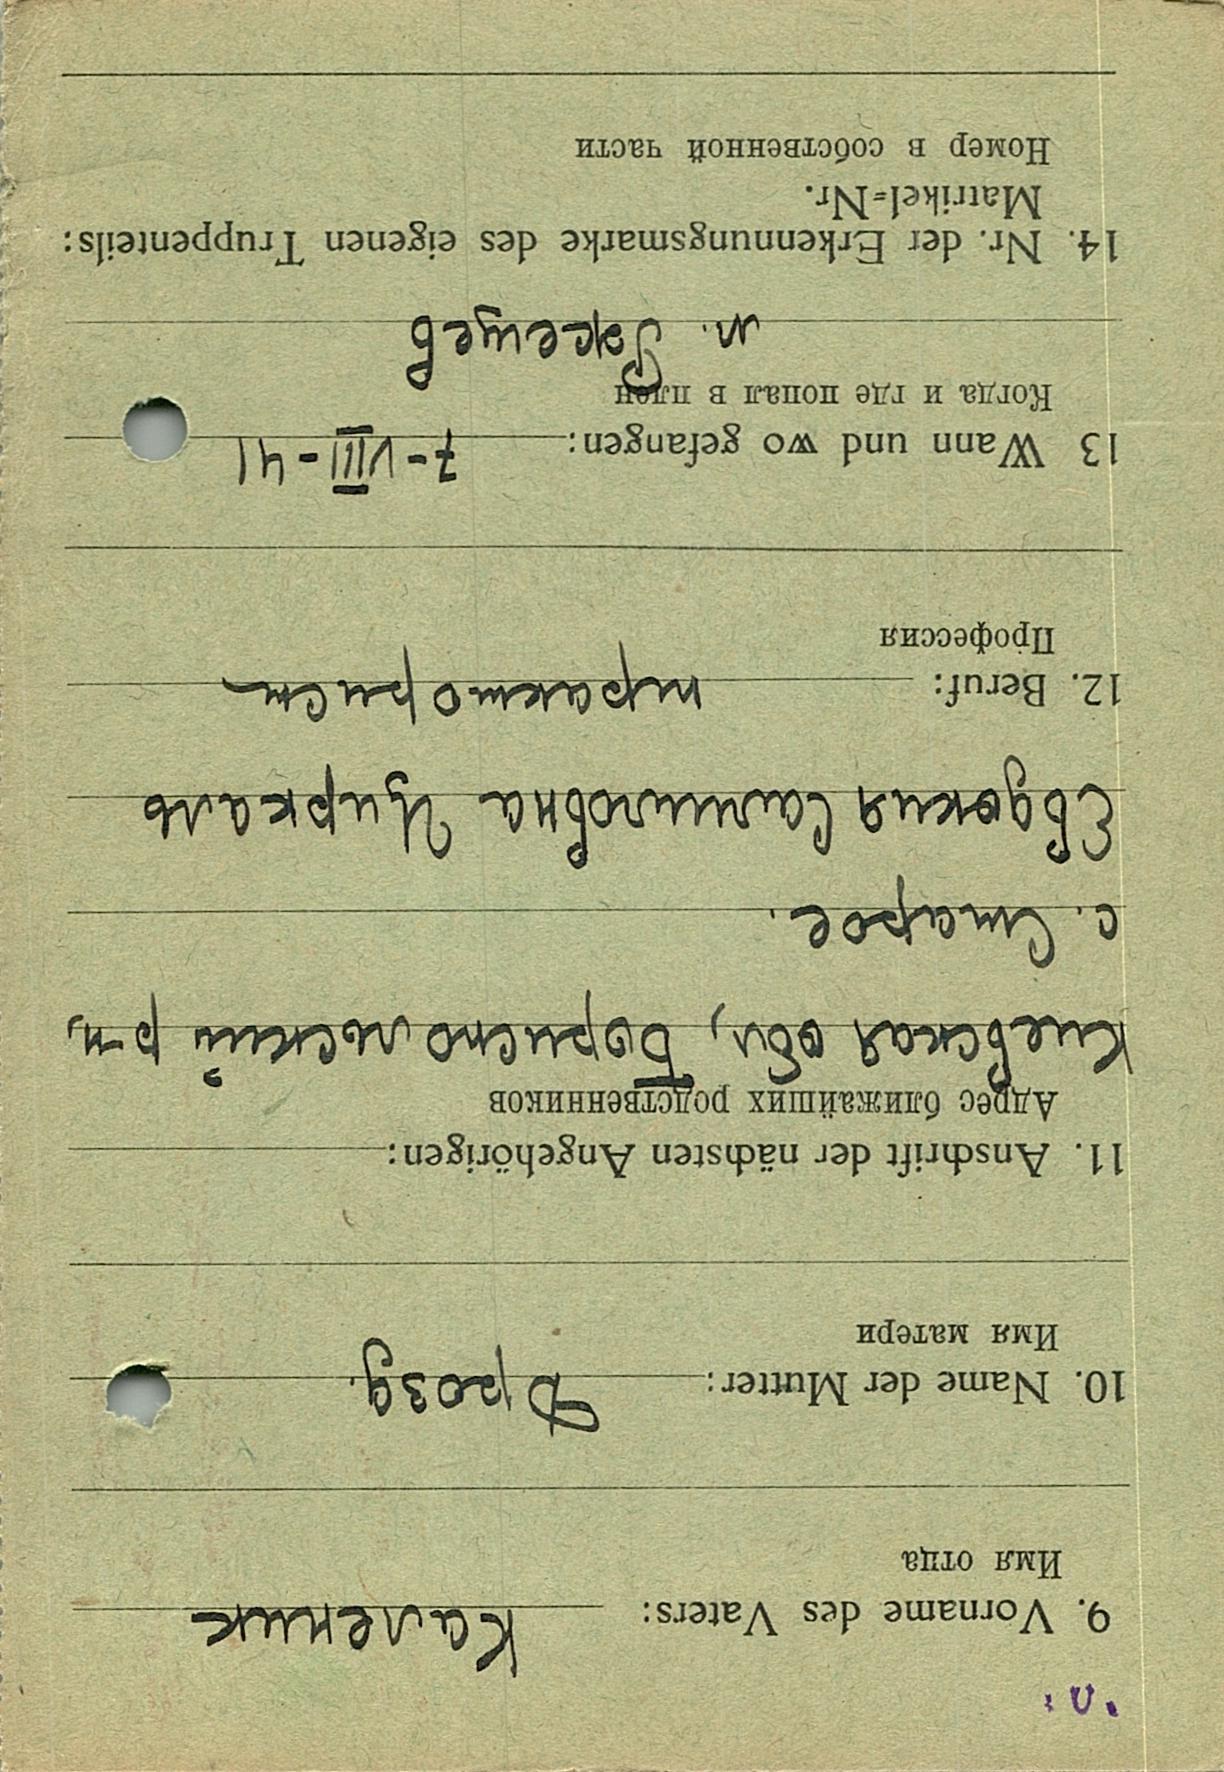 9. Vorname des Vaters: Каленик
Имя отца
10. Name der Mutter: Дрозд.
Имя матери
11. Anschrift der nächsten Angehörigen:
Адрес ближайших родственников
Киевская обл, Бориспольский р-н,
с. Старое.
Евдокия Самиловна Циркаль
12. Beruf: тракторист
Профессия
13 Wann und wo gefangen: 7-VIII-41
Когда и где попал в плен
м. Ржещев
14. Nr. der Erkennungsmarke des eigenen Truppenteils:
Matrikel=Nr.
Номер в собственной части